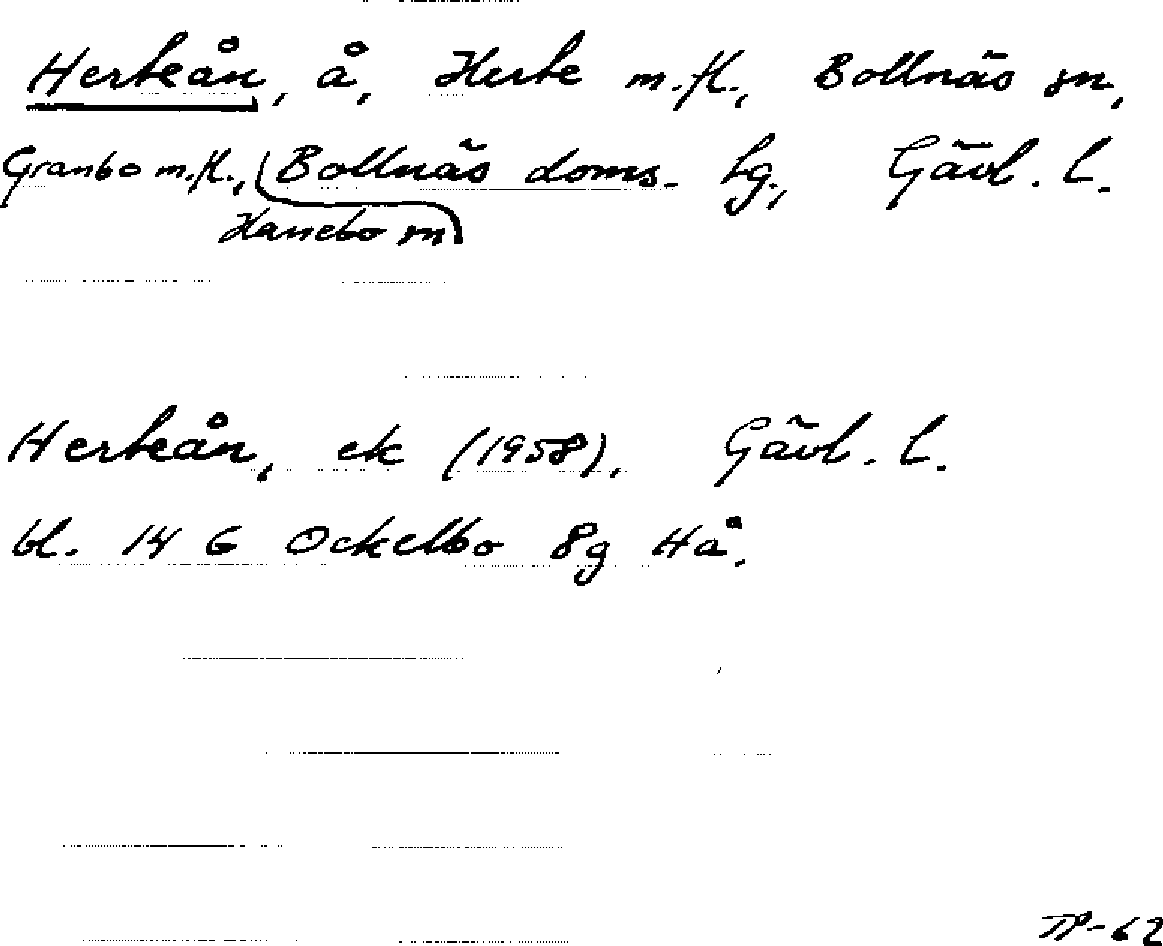 Herteån, å, Herte m.fl., Bollnäs sn,
Granbo m.fl., Bollnäs doms. hg, Gävl. l.
Hanebo sn
Herteån, ek (1958), Gävl. l.
bl. 14 G Ockelbo 8g Hå.
TP-62